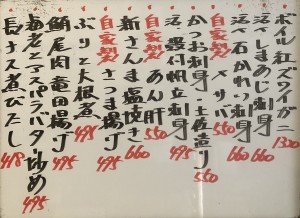 ボイル紅ズワイガニ 1300
活〆しまあじ刺身 660
活〆石かれい刺身 660
自家製〆サバ 550
かつお刺身・土佐造り 550
活〆殻付帆立刺身 495
自家製あん肝 550
新さんま塩焼き 660
自家製さつま揚げ
ぶりと大根煮 495
鮪尾肉竜田揚げ 495
海老とアスパラバター炒め 495
長ナス煮びたし 418